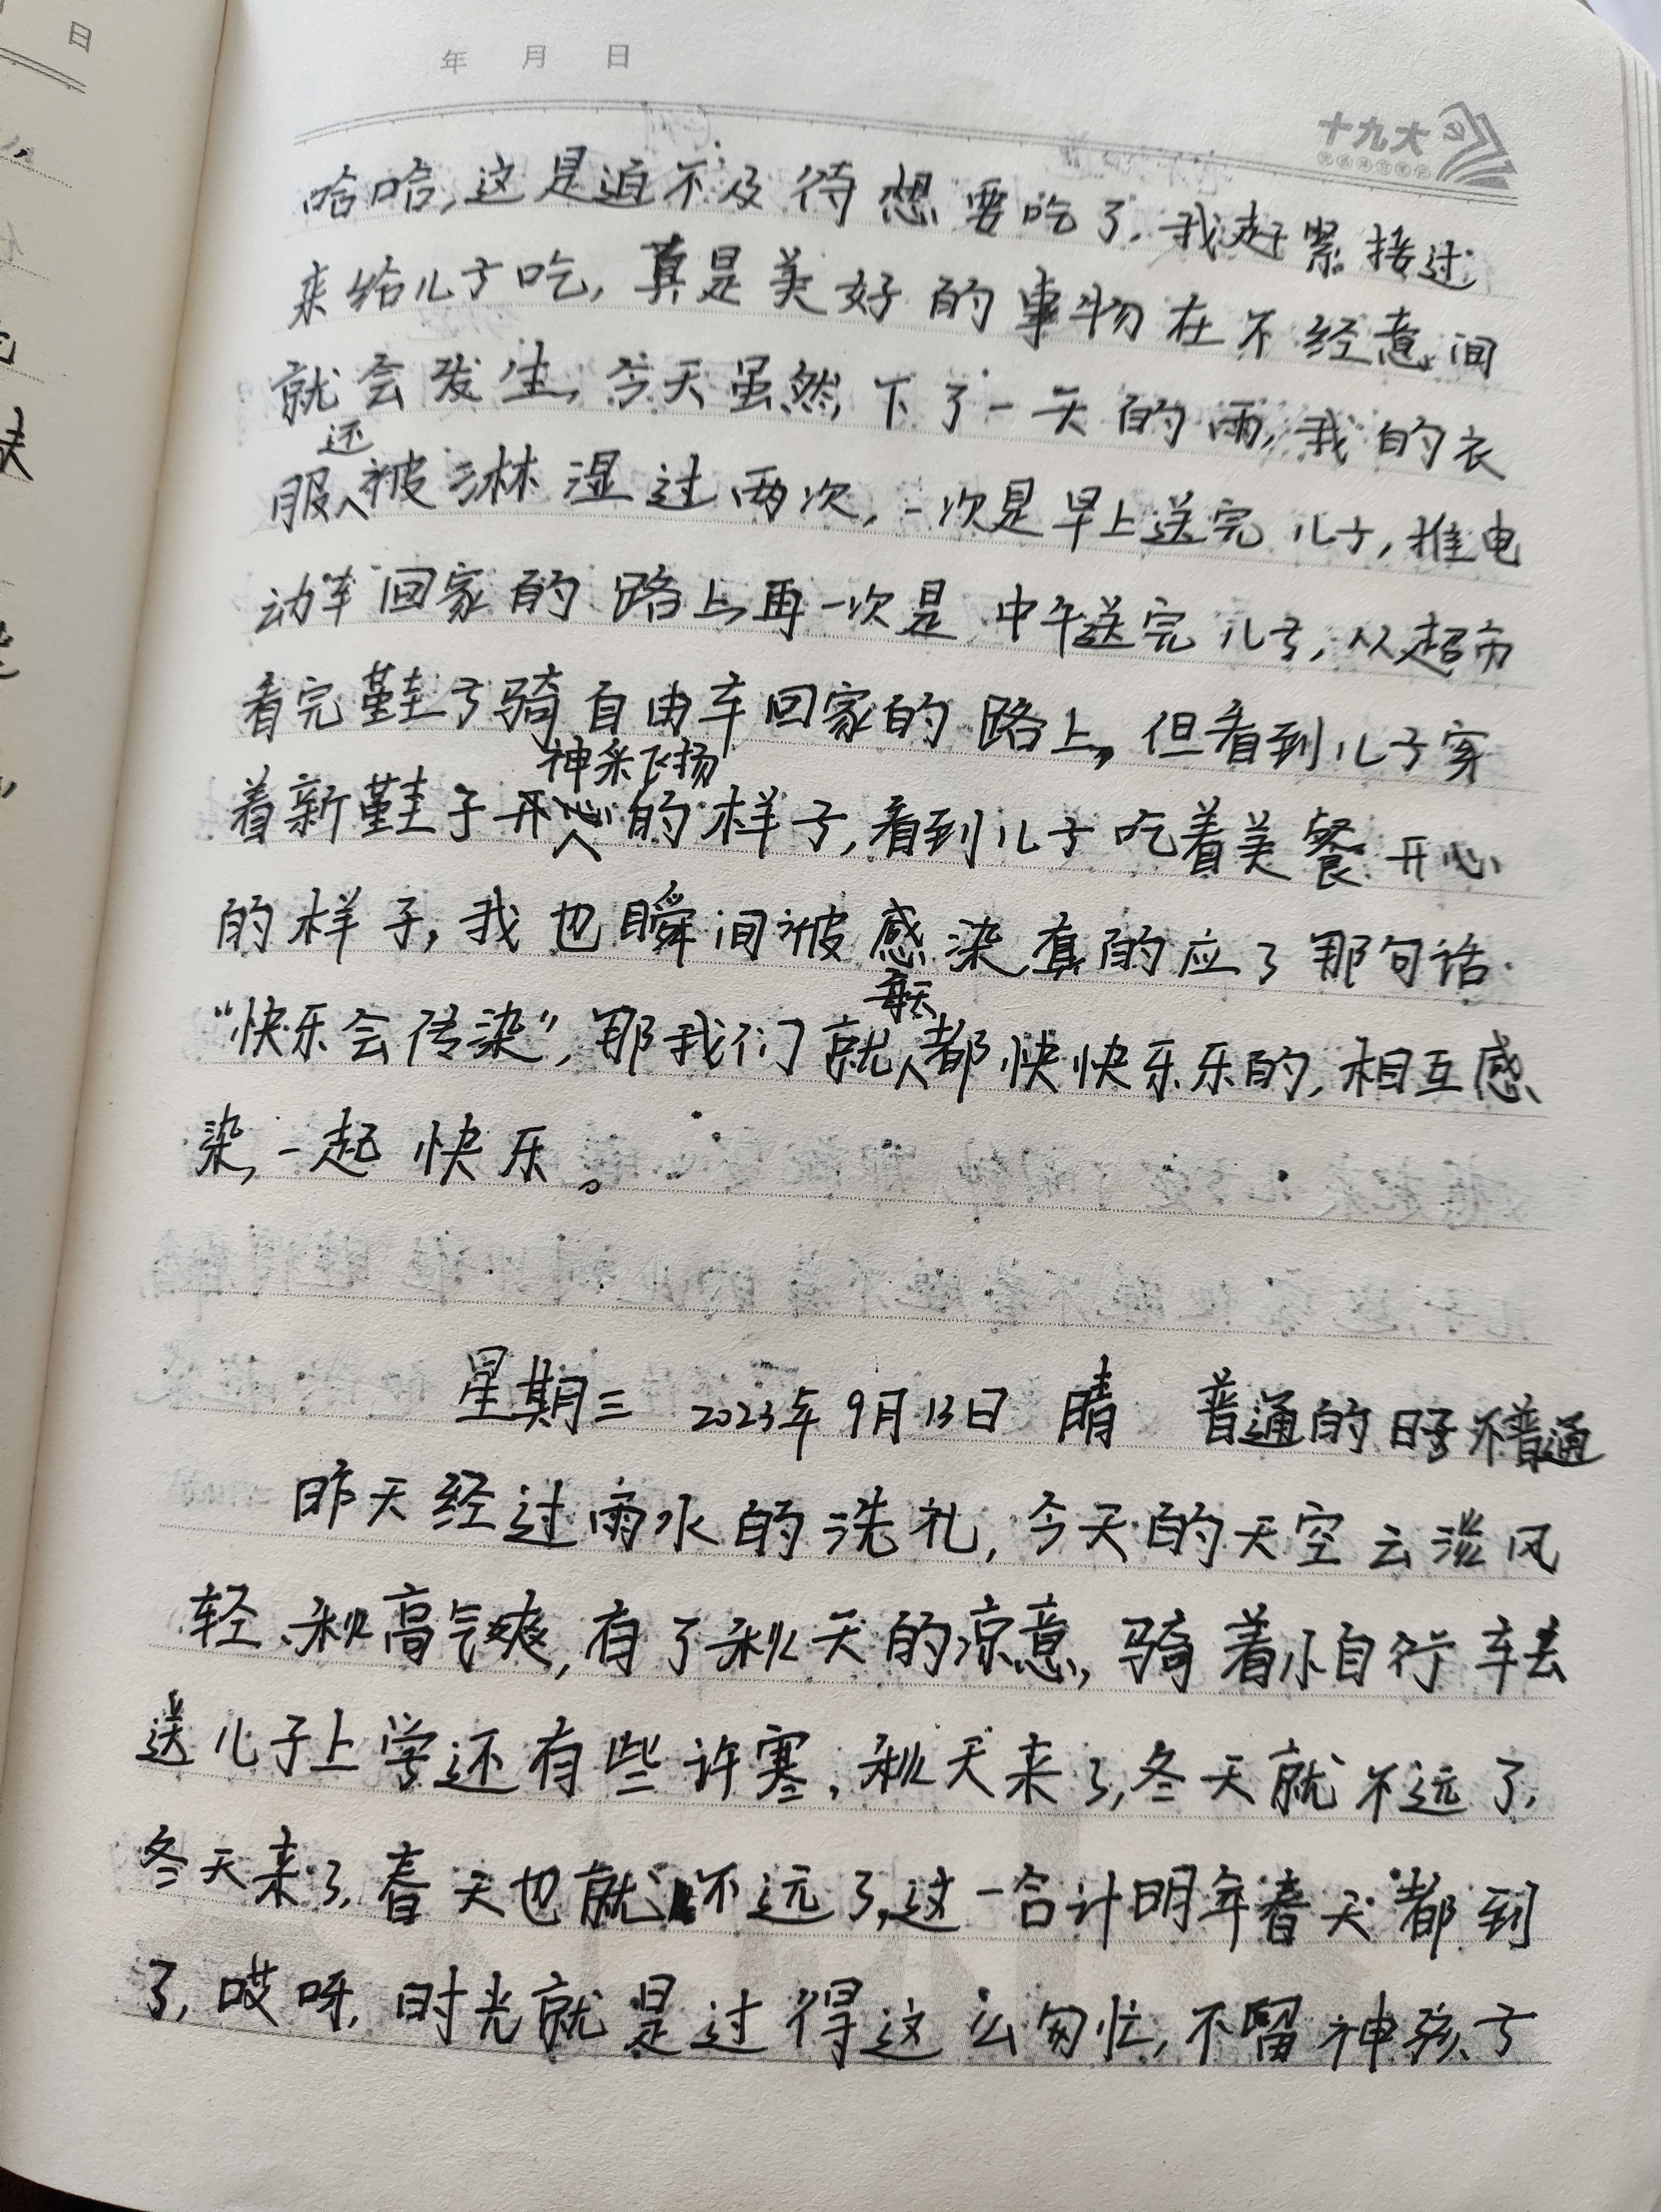 日
年 月 日
十九大
哈哈,这是迫不及待想要吃了,我赶紧接过
来给儿子吃,真是美好的事物在不经意间
就会发生,今天虽然下了一天的雨,我的衣
服还被淋湿过两次,一次是早上送完儿子,推电
动车回家的路上,再一次是中午送完儿子,从超市
看完鞋子骑自由车回家的路上,但看到儿子穿
着新鞋子开心神采飞扬的样子,看到儿子吃着美餐开心
的样子,我也瞬间被感染,真的应了那句话.
“快乐会传染”,那我们就每天都快快乐乐的,相互感
染,一起快乐。
星期三 2023年9月13日 晴 普通的日子不普通
昨天经过雨水的洗礼,今天的天空云淡风
轻、秋高气爽,有了秋天的凉意,骑着小自行车去
送儿子上学还有些许寒,秋天来了,冬天就不远了,
冬天来了,春天也就不远了,这一合计明年春天都到
了,哎呀,时光就是过得这么匆忙,不留神孩子